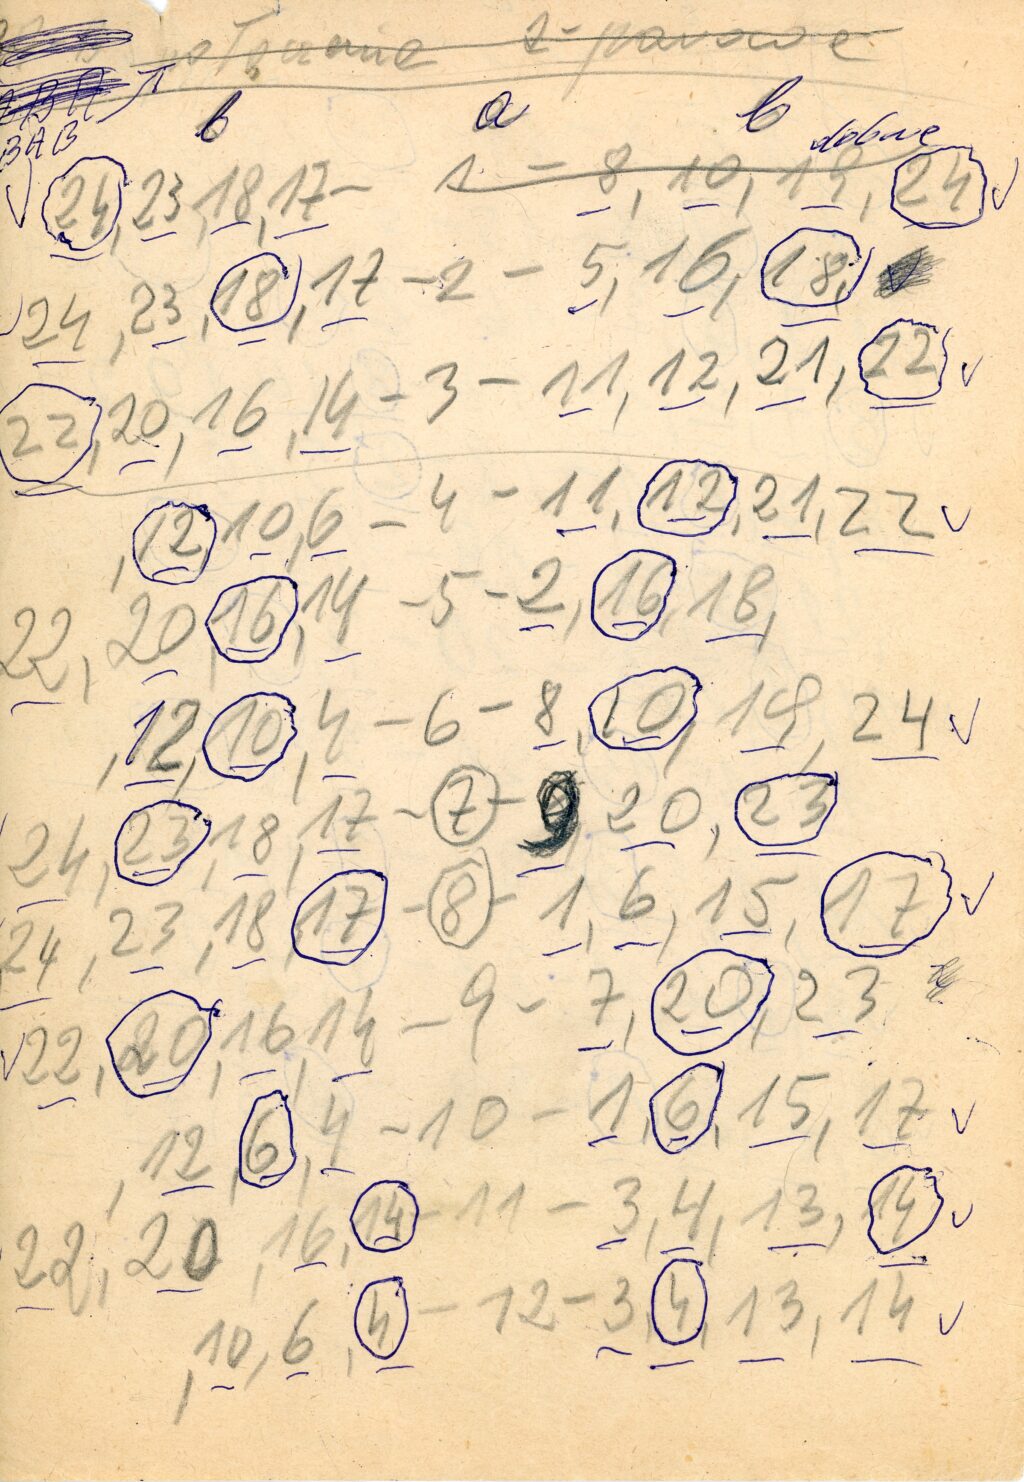 BAB
b a b
dobre
24, 23, 18, 17 - 1 - 8, 10, 19, 24
24, 23, 18, 17 - 2 - 5, 16, 18,
22, 20, 16, 14 - 3 - 11, 12, 21, 22
, 12, 10, 6 - 4 - 11, 12, 21, 22
22, 20, 16, 14 - 5 - 2, 16, 18,
, 12, 10, 4 - 6 - 8, 10, 19, 24
24, 23, 18, 17 - 7 - 9, 20, 23
24, 23, 18, 17 - 8 - 1, 6, 15, 17
22, 20, 16, 14 - 9 - 7, 20, 23
, 12, 6, 4 - 10 - 1, 6, 15, 17
22, 20, 16, 14 - 11 - 3, 4, 13, 14
, 10, 6, 4 - 12 - 3, 4, 13, 14